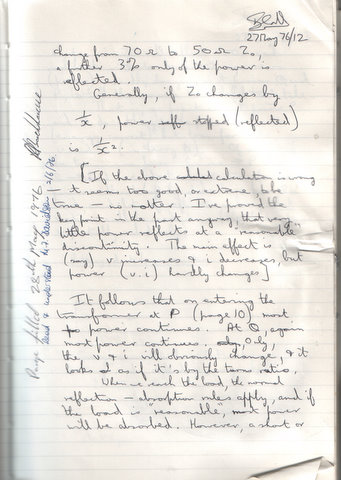 27 May 76/12
change from 70 Ω to 50 Ω Z₀,
a further 3% only of the power is
reflected.
Generally, if Z₀ changes by
1/x, power stopped (reflected)
is 1/x².
[If the above calculation is wrong
– it seems too good, or extreme, to be
true – no matter. I've proved the
key point in the first anyway, that very
little power reflects at a "reasonable"
discontinuity. The main effect is
(say) v increases & i decreases, but
power (v.i) hardly changes]
It follows that on entering the
transformer at P (page 10) most
power continues. At Q, again
most power continues. Only,
the v & i will obviously change, & it
looks as if it's by the turns ratio.
When we reach the load, the normal
reflection – absorption rules apply, and if
the load is "reasonable", most power
will be absorbed. However, a short or
Page filled 28th May 1976
Read & understood 2/6/76